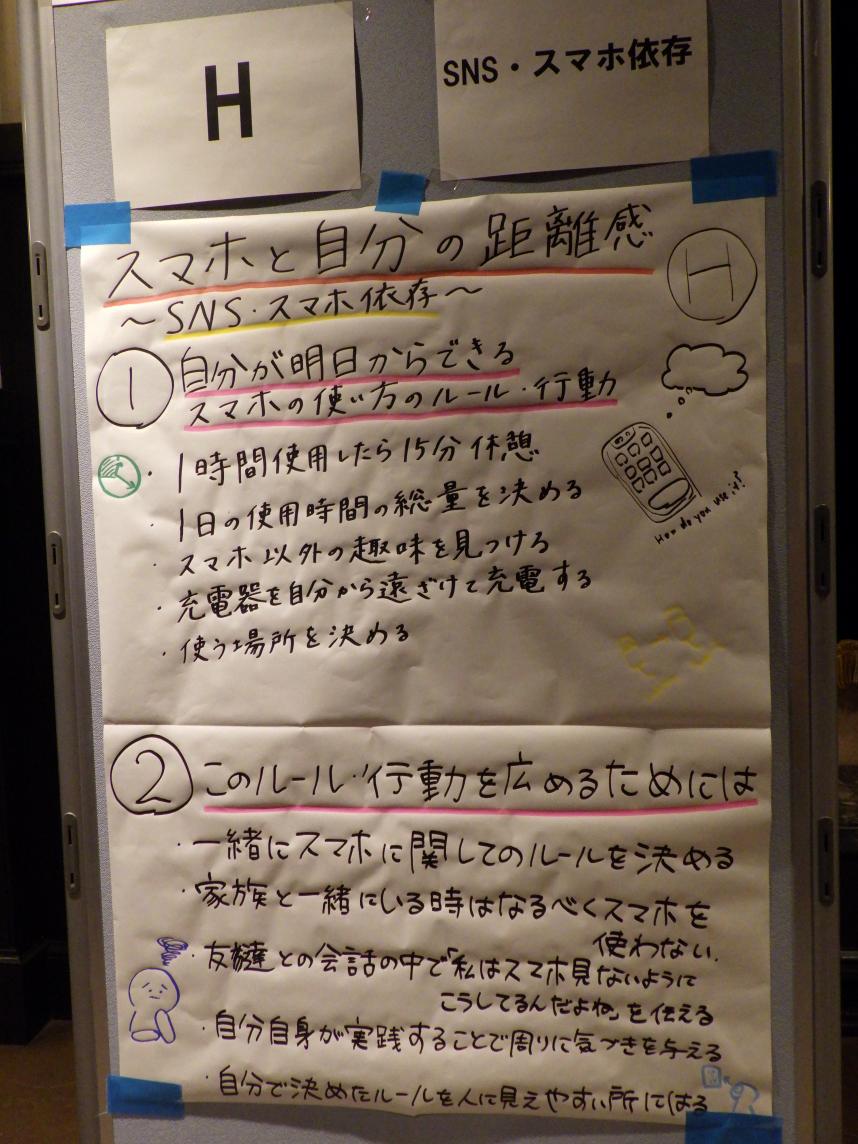 H
SNS・スマホ依存
スマホと自分の距離感
H
～SNS・スマホ依存～
① 自分が明日からできる
スマホの使い方のルール・行動
・1時間使用したら15分休憩
・1日の使用時間の総量を決める
・スマホ以外の趣味を見つける
・充電器を自分から遠ざけて充電する
・使う場所を決める
How do you use it?
② このルール・行動を広めるためには
・一緒にスマホに関してのルールを決める
・家族と一緒にいる時はなるべくスマホを
使わない.
・友達との会話の中で「私はスマホ見ないように
こうしてるんだよね」を伝える
・自分自身が実践することで周りに気づきを与える
・自分で決めたルールを人に見えやすい所にはる